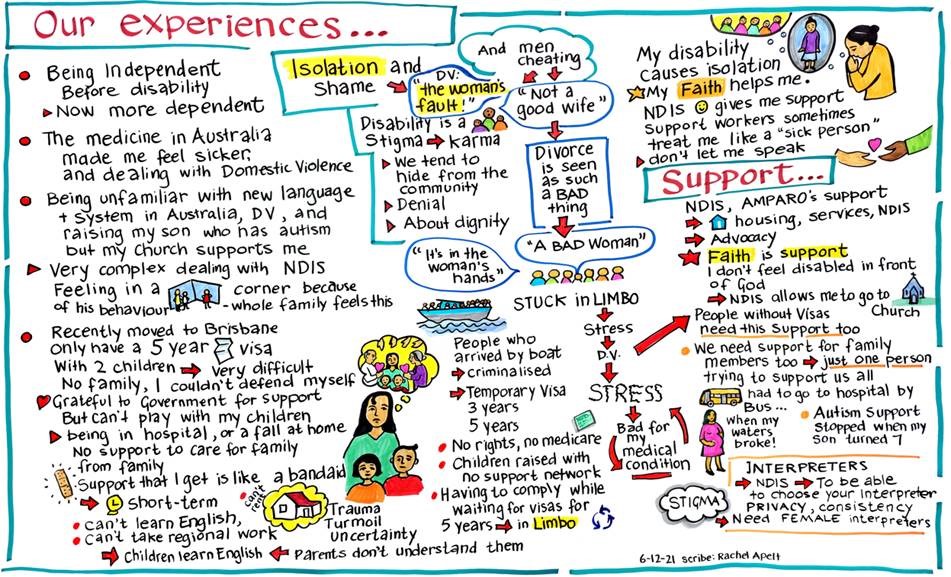 Our experiences...
Being Independent
Before disability
Now more dependent
The medicine in Australia
made me feel sicker,
and dealing with Domestic Violence
Being unfamiliar with new language
+ System in Australia, DV, and
raising my son who has autism
but my Church supports me
Very complex dealing with NDIS
Feeling in a corner because
of his behaviour - whole family feels this
Recently moved to Brisbane
only have a 5 year visa
With 2 children very difficult
No family, I couldn't defend myself
Grateful to Government for support
But can't play with my children
being in hospital, or a fall at home
No support to care for family
from family
Support that I get is like a bandaid
Short-term
Can't learn English,
Can't take regional work
Children learn English Parents don't understand them
can't rent
Trauma
Turmoil
uncertainty
Isolation and
Shame
DV:
"the woman's
fault!"
And men
cheating
"Not a
good wife"
Disability is a
Stigma karma
We tend to
hide from the
community
Denial
About dignity
Divorce
is seen
as such
a BAD
thing
"A BAD Woman"
"It's in the
woman's
hands"
STUCK in LIMBO
Stress
D.V.
STRESS
Bad for
my
medical
condition
People who
arrived by boat
criminalised
Temporary Visa
3 years
5 years
No rights, no medicare
Children raised with
no support network
Having to comply while
waiting for visas for
5 years in Limbo
My disability
causes isolation
My Faith helps me.
NDIS gives me support
Support workers sometimes
treat me like a "sick person"
don't let me speak
Support...
NDIS, AMPARO's support
housing, services, NDIS
Advocacy
Faith is support
I don't feel disabled in front
of God
NDIS allows me to go to
Church
People without Visas
need this Support too
We need support for family
members too just one person
trying to support us all
had to go to hospital by
Bus...
when my
waters
broke!
Autism Support
stopped when my
son turned 7
INTERPRETERS
NDIS To be able
to choose your interpreter
PRIVACY, consistency
Need FEMALE interpreters
STIGMA
6-12-21 scribe: Rachel Apelt